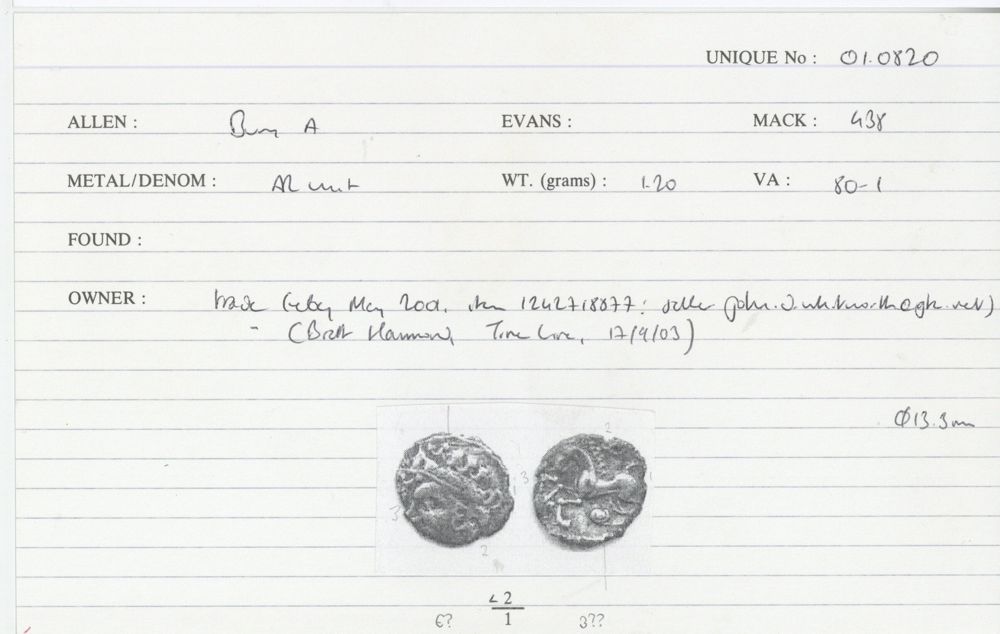 UNIQUE No : 01.0820
ALLEN : Bury A EVANS : MACK : 438
METAL/DENOM : AR unit WT. (grams) : 1.20 VA : 80-1
FOUND :
OWNER : trade (eBay May 2001, item 1242718877: seller john.j.whitworth@gtr.net)
- (Brett Hammond, Time Line, 17/9/03)
Ø13.3mm
2
3 1
3
2
<2
6? 1 3??